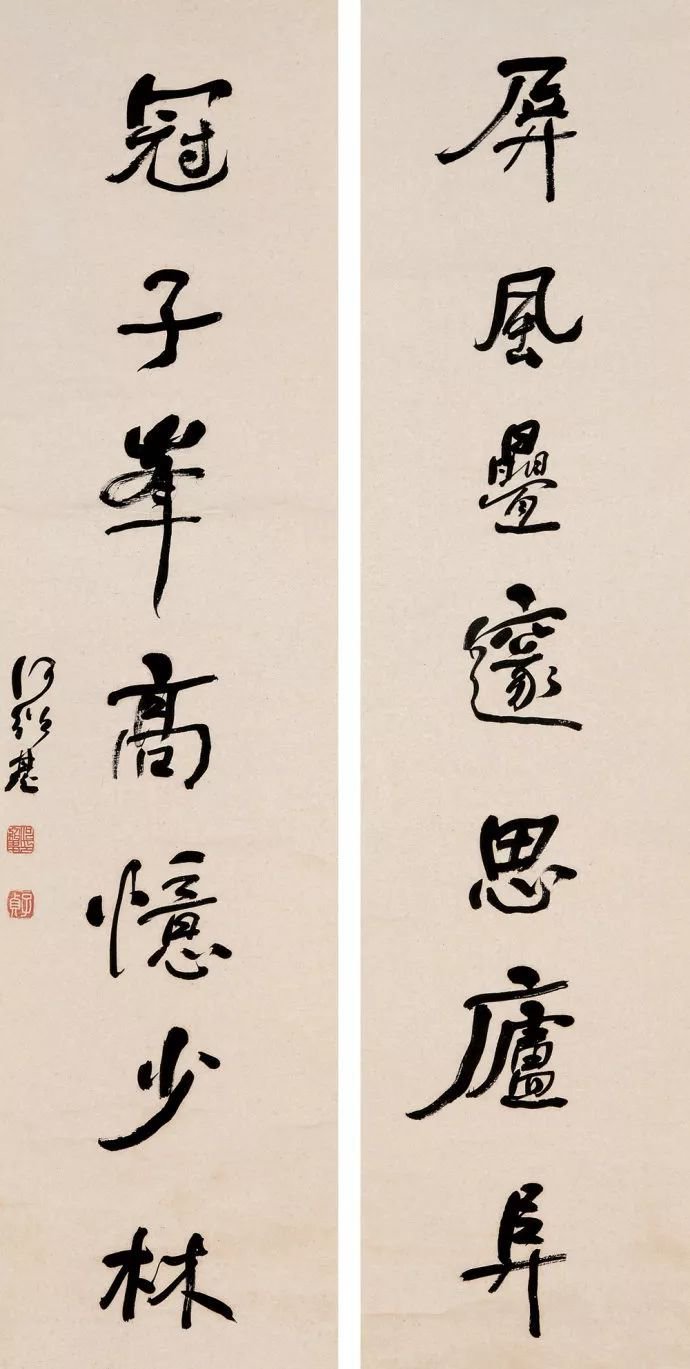 屏風疊邃思廬阜
冠子峯高憶少林
何紹基